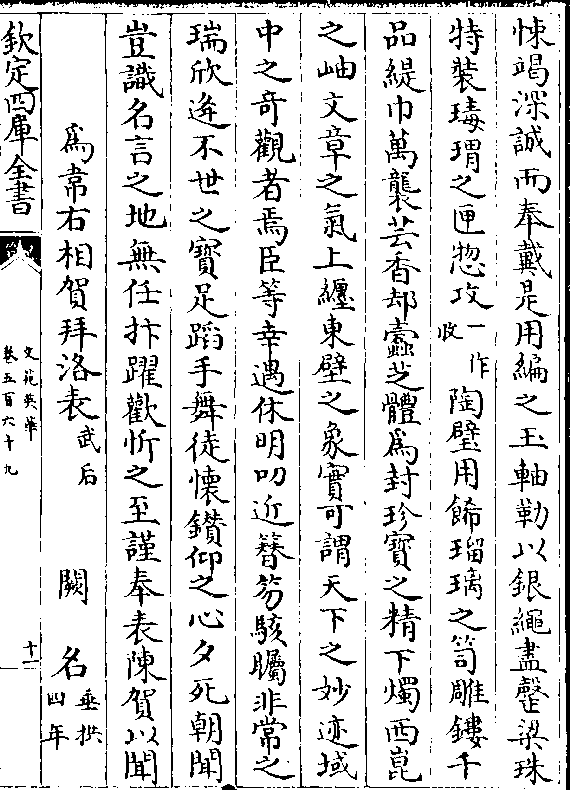 悚竭深誠而奉戴是用編之玉軸勒以銀繩盡罄梁珠
特裝瑇瑁之匣惣攻一作收陶璧用餙瑠璃之笥雕鏤千
品緹巾萬襲芸香却蠧芝體爲封珍寳之精下燭西崑
之岫文章之氣上纒東壁之象實可謂天下之妙迹域
中之竒觀者焉臣等幸遇休明叨近簪笏駭矚非常之
瑞欣逢不世之寶足蹈手舞徒懷鑚仰之心夕死朝聞
豈識名言之地無任抃躍歡忻之至謹奉表陳賀以聞
爲韋右相賀拜洛表武后 闕名垂拱四年
欽定四庫全書
文苑英華
卷五百六十九
十一